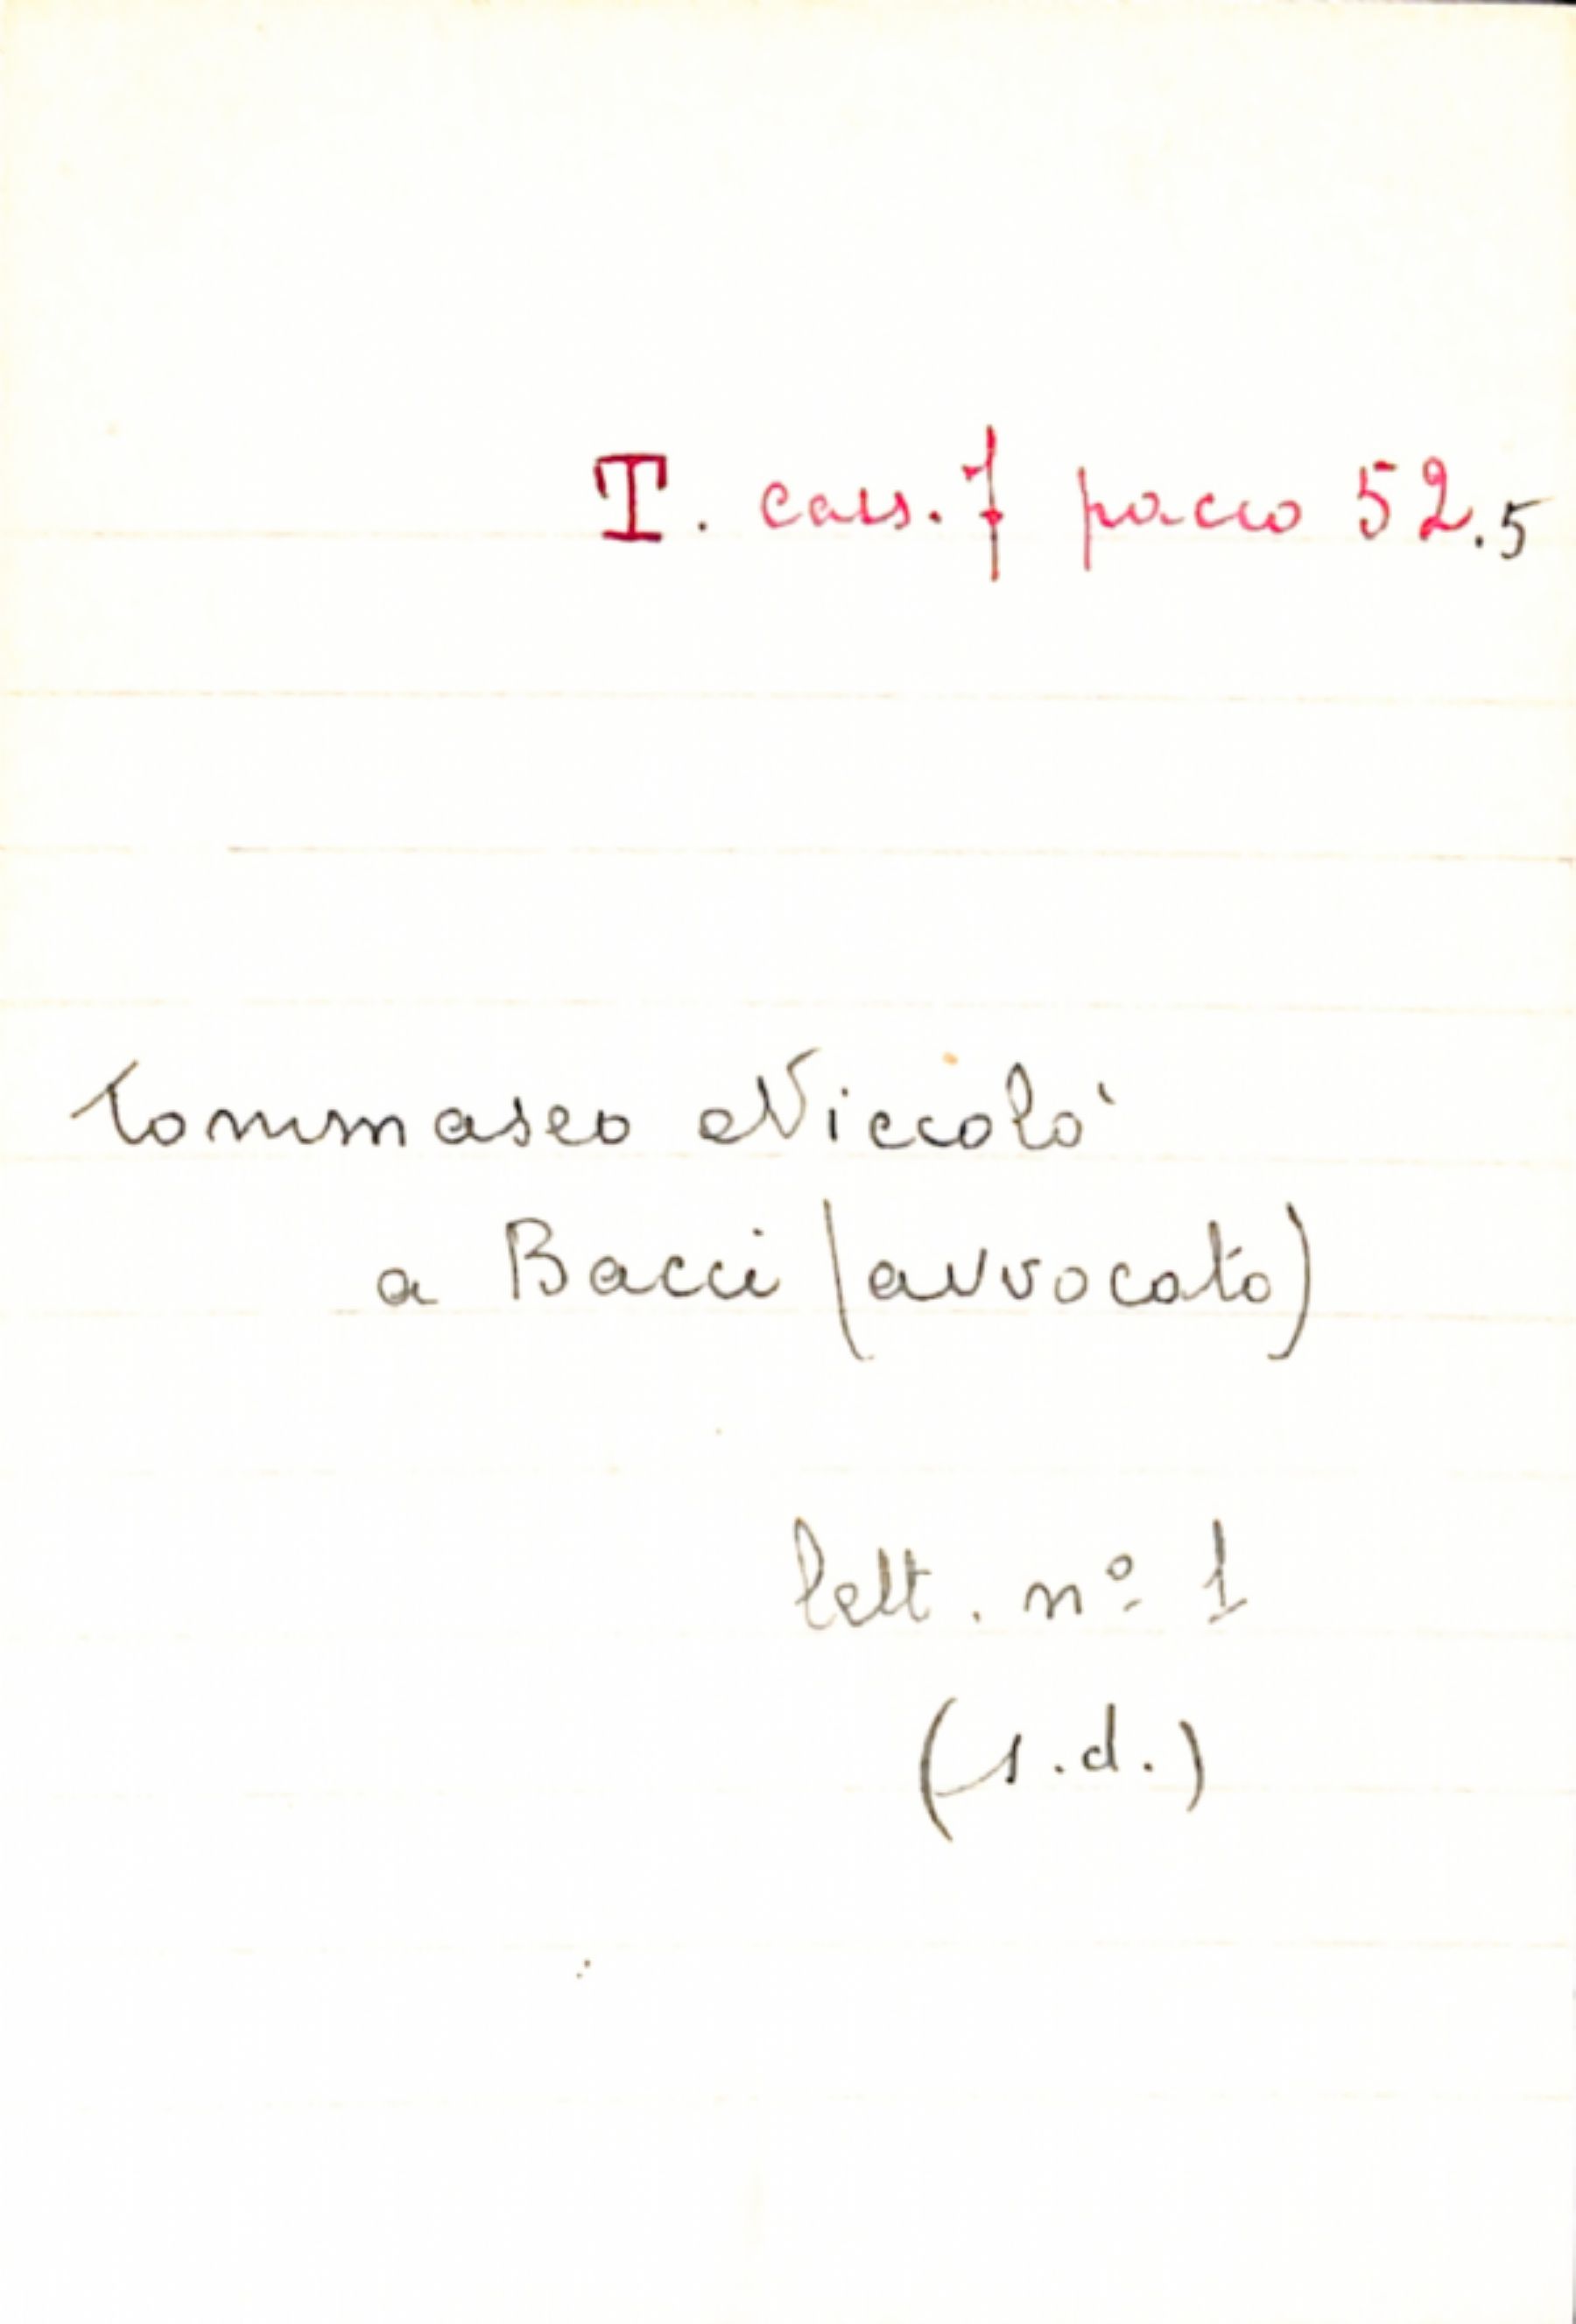 T. cass. 7 pacco 52.5
Tommaseo Niccolò
a Bacci (avvocato)
lett. nº 1
(s.d.)